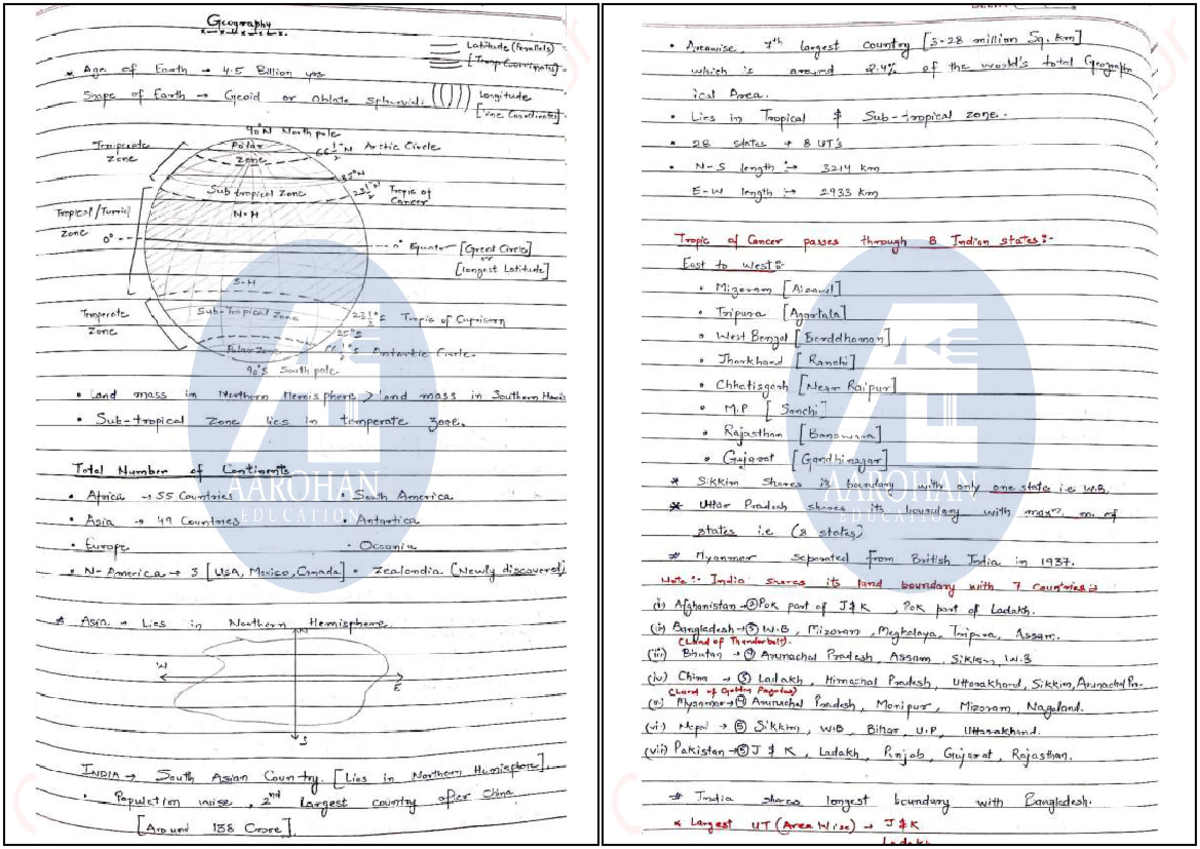 Geography
Latitude (Parallels)
[Temp Coordinates]
* Age of Earth → 4.5 Billion yrs
Shape of Earth → Geoid or Oblate Spheroid.
Longitude
[Time Coordinates]
90°N North pole
Temperate zone
Polar zone
66 1/2° N Arctic Circle
35°N
Sub tropical Zone
23 1/2° N Tropic of Cancer
N.H
Tropical/Turrid zone
0°
0° Equator [Great Circle]
or
[longest Latitude]
S.H
Temperate zone
Sub-Tropical Zone
23 1/2° S Tropic of Capricorn
35°S
Polar Zone
66 1/2° S Antarctic Circle
90°S South pole
• Land mass in Northern Hemisphere > land mass in Southern Hemis
• Sub-tropical Zone lies in temperate zone.
Total Number of Continents
• Africa → 55 Countries • South America
• Asia → 49 Countries • Antartica
• Europe • Oceania
• N-America → 3 [USA, Mexico, Canada] • Zealandia (Newly discovered)
* Asia → Lies in Northern Hemisphere.
N
W
E
S
INDIA → South Asian Country. [Lies in Northern Hemisphere].
• Population wise, 2nd largest country after China
[Around 138 Crore].
• Areawise, 7th largest country [3.28 million Sq. Km]
which is around 2.4% of the world's total Geograph
ical Area.
• Lies in Tropical & Sub-tropical zone.
• 28 states + 8 UT's
• N-S length :→ 3214 km
E-W length :→ 2933 km
Tropic of Cancer passes through 8 Indian states:-
East to West:-
• Mizoram [Aizawl]
• Tripura [Agartala]
• West Bengal [Barddhaman]
• Jharkhand [Ranchi]
• Chhatisgarh [Near Raipur]
• M.P [Sanchi]
• Rajasthan [Banswara]
• Gujarat [Gandhinagar]
* Sikkim shares its boundary with only one state i.e W.B.
* Uttar Pradesh shares its boundary with maxm no. of
states i.e (8 states)
# Myanmar separated from British India in 1937.
Note:- India shares its land boundary with 7 countries:-
(i) Afghanistan → ② Pok part of J&K, Pok part of Ladakh.
(ii) Bangladesh → ⑤ W.B, Mizoram, Meghalaya, Tripura, Assam.
(Land of Thunderbolt).
(iii) Bhutan → ④ Arunachal Pradesh, Assam, Sikkim, W.B
(iv) China → ⑤ Ladakh, Himachal Pradesh, Uttarakhand, Sikkim, Arunachal Pra.
(Land of Golden Pagodas)
(v) Myanmar → ④ Arunachal Pradesh, Manipur, Mizoram, Nagaland.
(vi) Nepal → ⑤ Sikkim, W.B, Bihar, U.P, Uttarakhand.
(vii) Pakistan → ⑤ J & K, Ladakh, Punjab, Gujarat, Rajasthan.
# India shares longest boundary with Bangladesh.
* Largest UT (Area Wise) → J&K
Ladakh
AAROHAN
EDUCATION
AAROHAN
EDUCATION